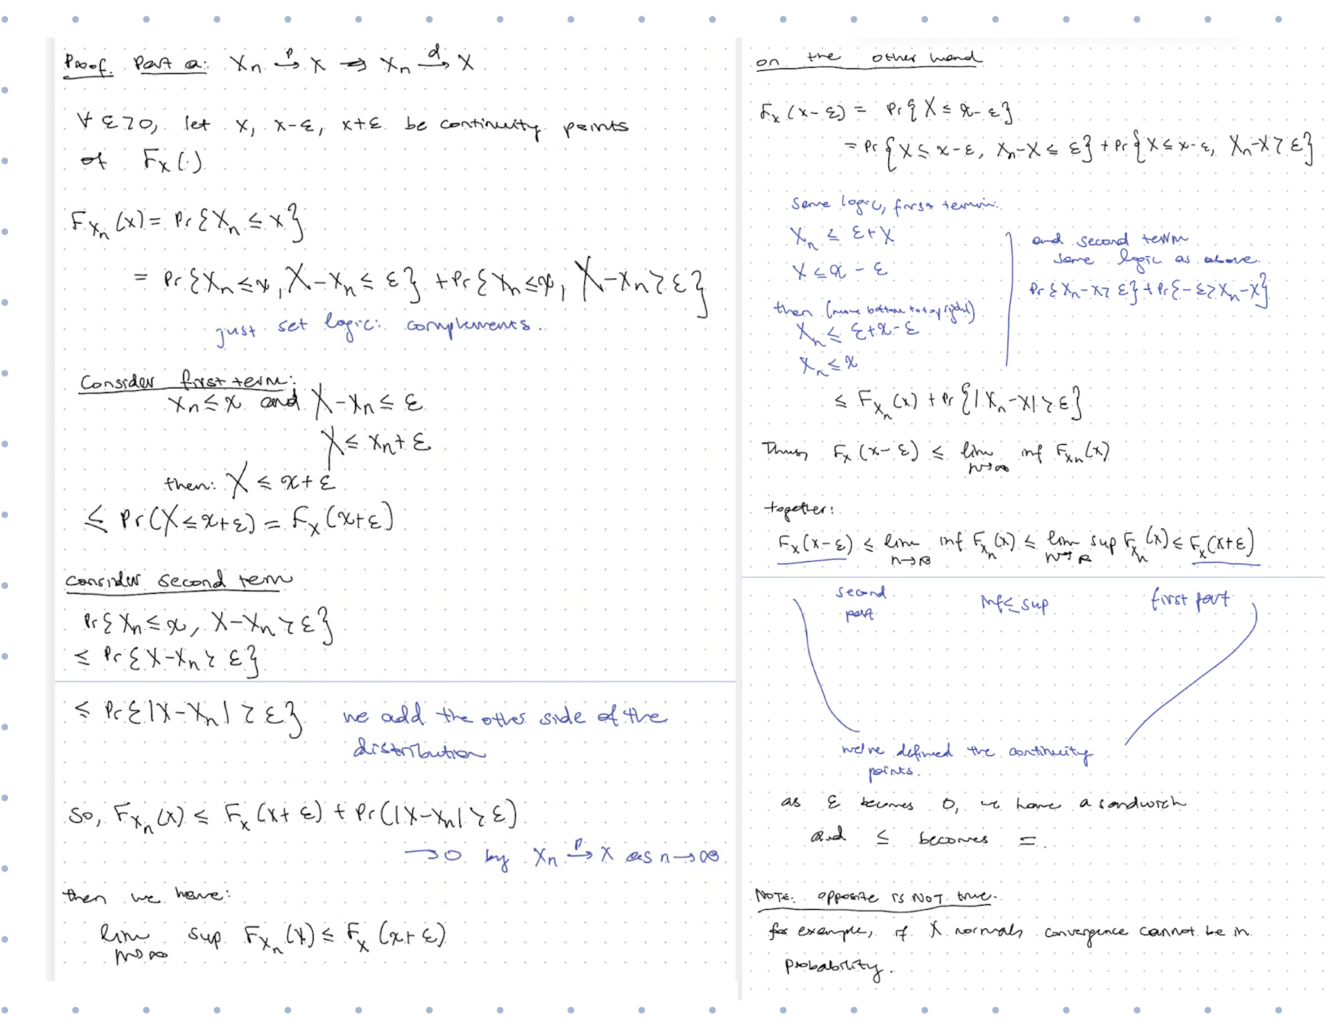 Proof. Part a: Xn →p X ⇒ Xn →d X
∀ ε>0, let x, x-ε, x+ε be continuity points
of F_X(.)
F_Xn(x) = Pr{Xn ≤ x}
= Pr{Xn ≤ x, X-Xn ≤ ε} + Pr{Xn ≤ x, X-Xn > ε}
just set logic: complements.
Consider first term:
Xn ≤ x and X-Xn ≤ ε
X ≤ Xn + ε
then: X ≤ x+ε
≤ Pr(X ≤ x+ε) = F_X(x+ε)
consider second term
Pr{Xn ≤ x, X-Xn > ε}
≤ Pr{X-Xn > ε}
≤ Pr{|X-Xn| > ε} we add the other side of the
distribution
So, F_Xn(x) ≤ F_X(x+ε) + Pr(|X-Xn| > ε)
→0 by Xn →p X as n→∞.
then we have:
lim sup F_Xn(x) ≤ F_X(x+ε)
n→∞
on the other hand
F_X(x-ε) = Pr{X ≤ x-ε}
= Pr{X ≤ x-ε, Xn-X ≤ ε} + Pr{X ≤ x-ε, Xn-X > ε}
same logic, first term:
Xn ≤ ε+X
X ≤ x-ε
then (move bottom to top right)
Xn ≤ ε+x-ε
Xn ≤ x
and second term
same logic as above.
Pr{Xn-X > ε} + Pr{-ε > Xn-X}
≤ F_Xn(x) + Pr{|Xn-X| > ε}
Thus, F_X(x-ε) ≤ lim inf F_Xn(x)
n→∞
together:
F_X(x-ε) ≤ lim inf F_Xn(x) ≤ lim sup F_Xn(x) ≤ F_X(x+ε)
n→∞ n→∞
second part inf ≤ sup first part
we've defined the continuity
points.
as ε becomes 0, we have a sandwich
and ≤ becomes =.
NOTE: opposite is NOT true.
for example, if X normals convergence cannot be in
probability.